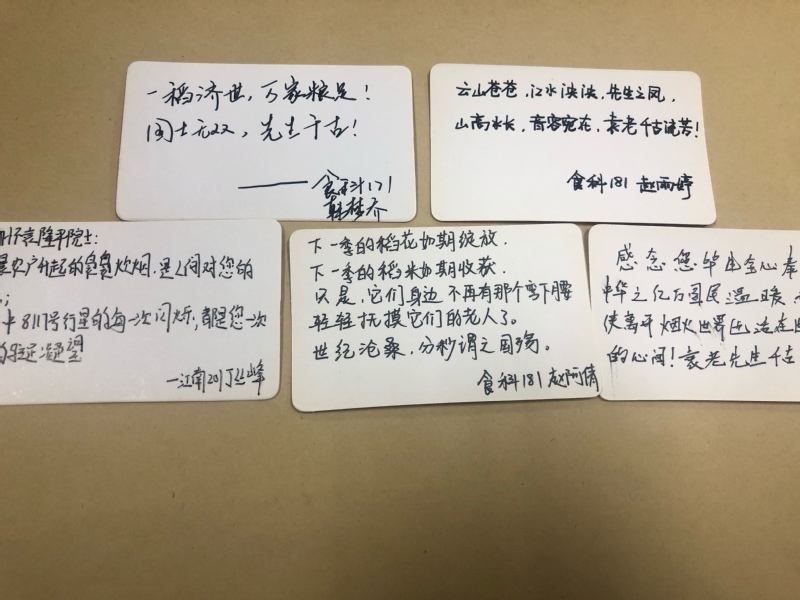 一稻济世，万家粮足！
国士无双，先生千古！
——食科171
韩梦乔
云山苍苍，江水泱泱，先生之风，
山高水长，音容宛在，袁老千古流芳！
食科181 赵雨婷
怀袁隆平院士：
农户升起的袅袅炊烟，是人间对您的
8117号行星的每一次闪烁，都是您一次
凝望
—江南201丁丛峰
下一季的稻花如期绽放．
下一季的稻米如期收获．
只是，它们身边不再有那个弯下腰
轻轻抚摸它们的老人了。
世纪沧桑，分秒谓之国殇。
食科181 赵阿倩
感念您毕由全心奉
中华之亿万国民温暖
使离开烟火世界还活在
的心间！袁老先生千古